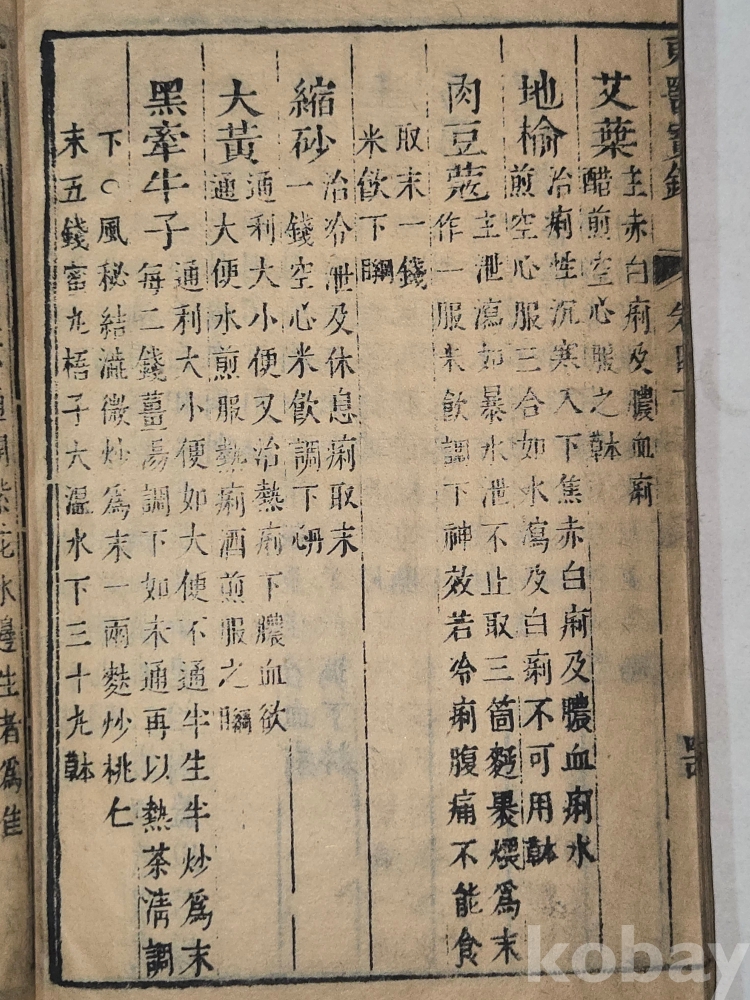 東醫寶鑑
艾葉 主赤白痢及膿血痢
醋煎空心服之本
地榆 治痢性沉寒入下焦赤白痢及膿血痢水
煎空心服三合如水瀉及白痢不可用本
肉豆蔻 主泄瀉如暴水泄不止取三箇麪裹煨爲末
作一服米飮調下神效若冷痢腹痛不能食
取末一錢
米飮下
縮砂 治冷泄及休息痢取末
一錢空心米飮調下
大黃 通利大小便又治熱痢下膿血欲
通大便水煎服熱痢酒煎服之
黑牽牛子 通利大小便如大便不通半生半炒爲末
每二錢薑湯調下如未通再以熱茶淸調
下○風秘結澁微炒爲末一兩麩炒桃仁
末五錢蜜丸梧子大溫水下三十丸
花水邊生者爲佳
kobay